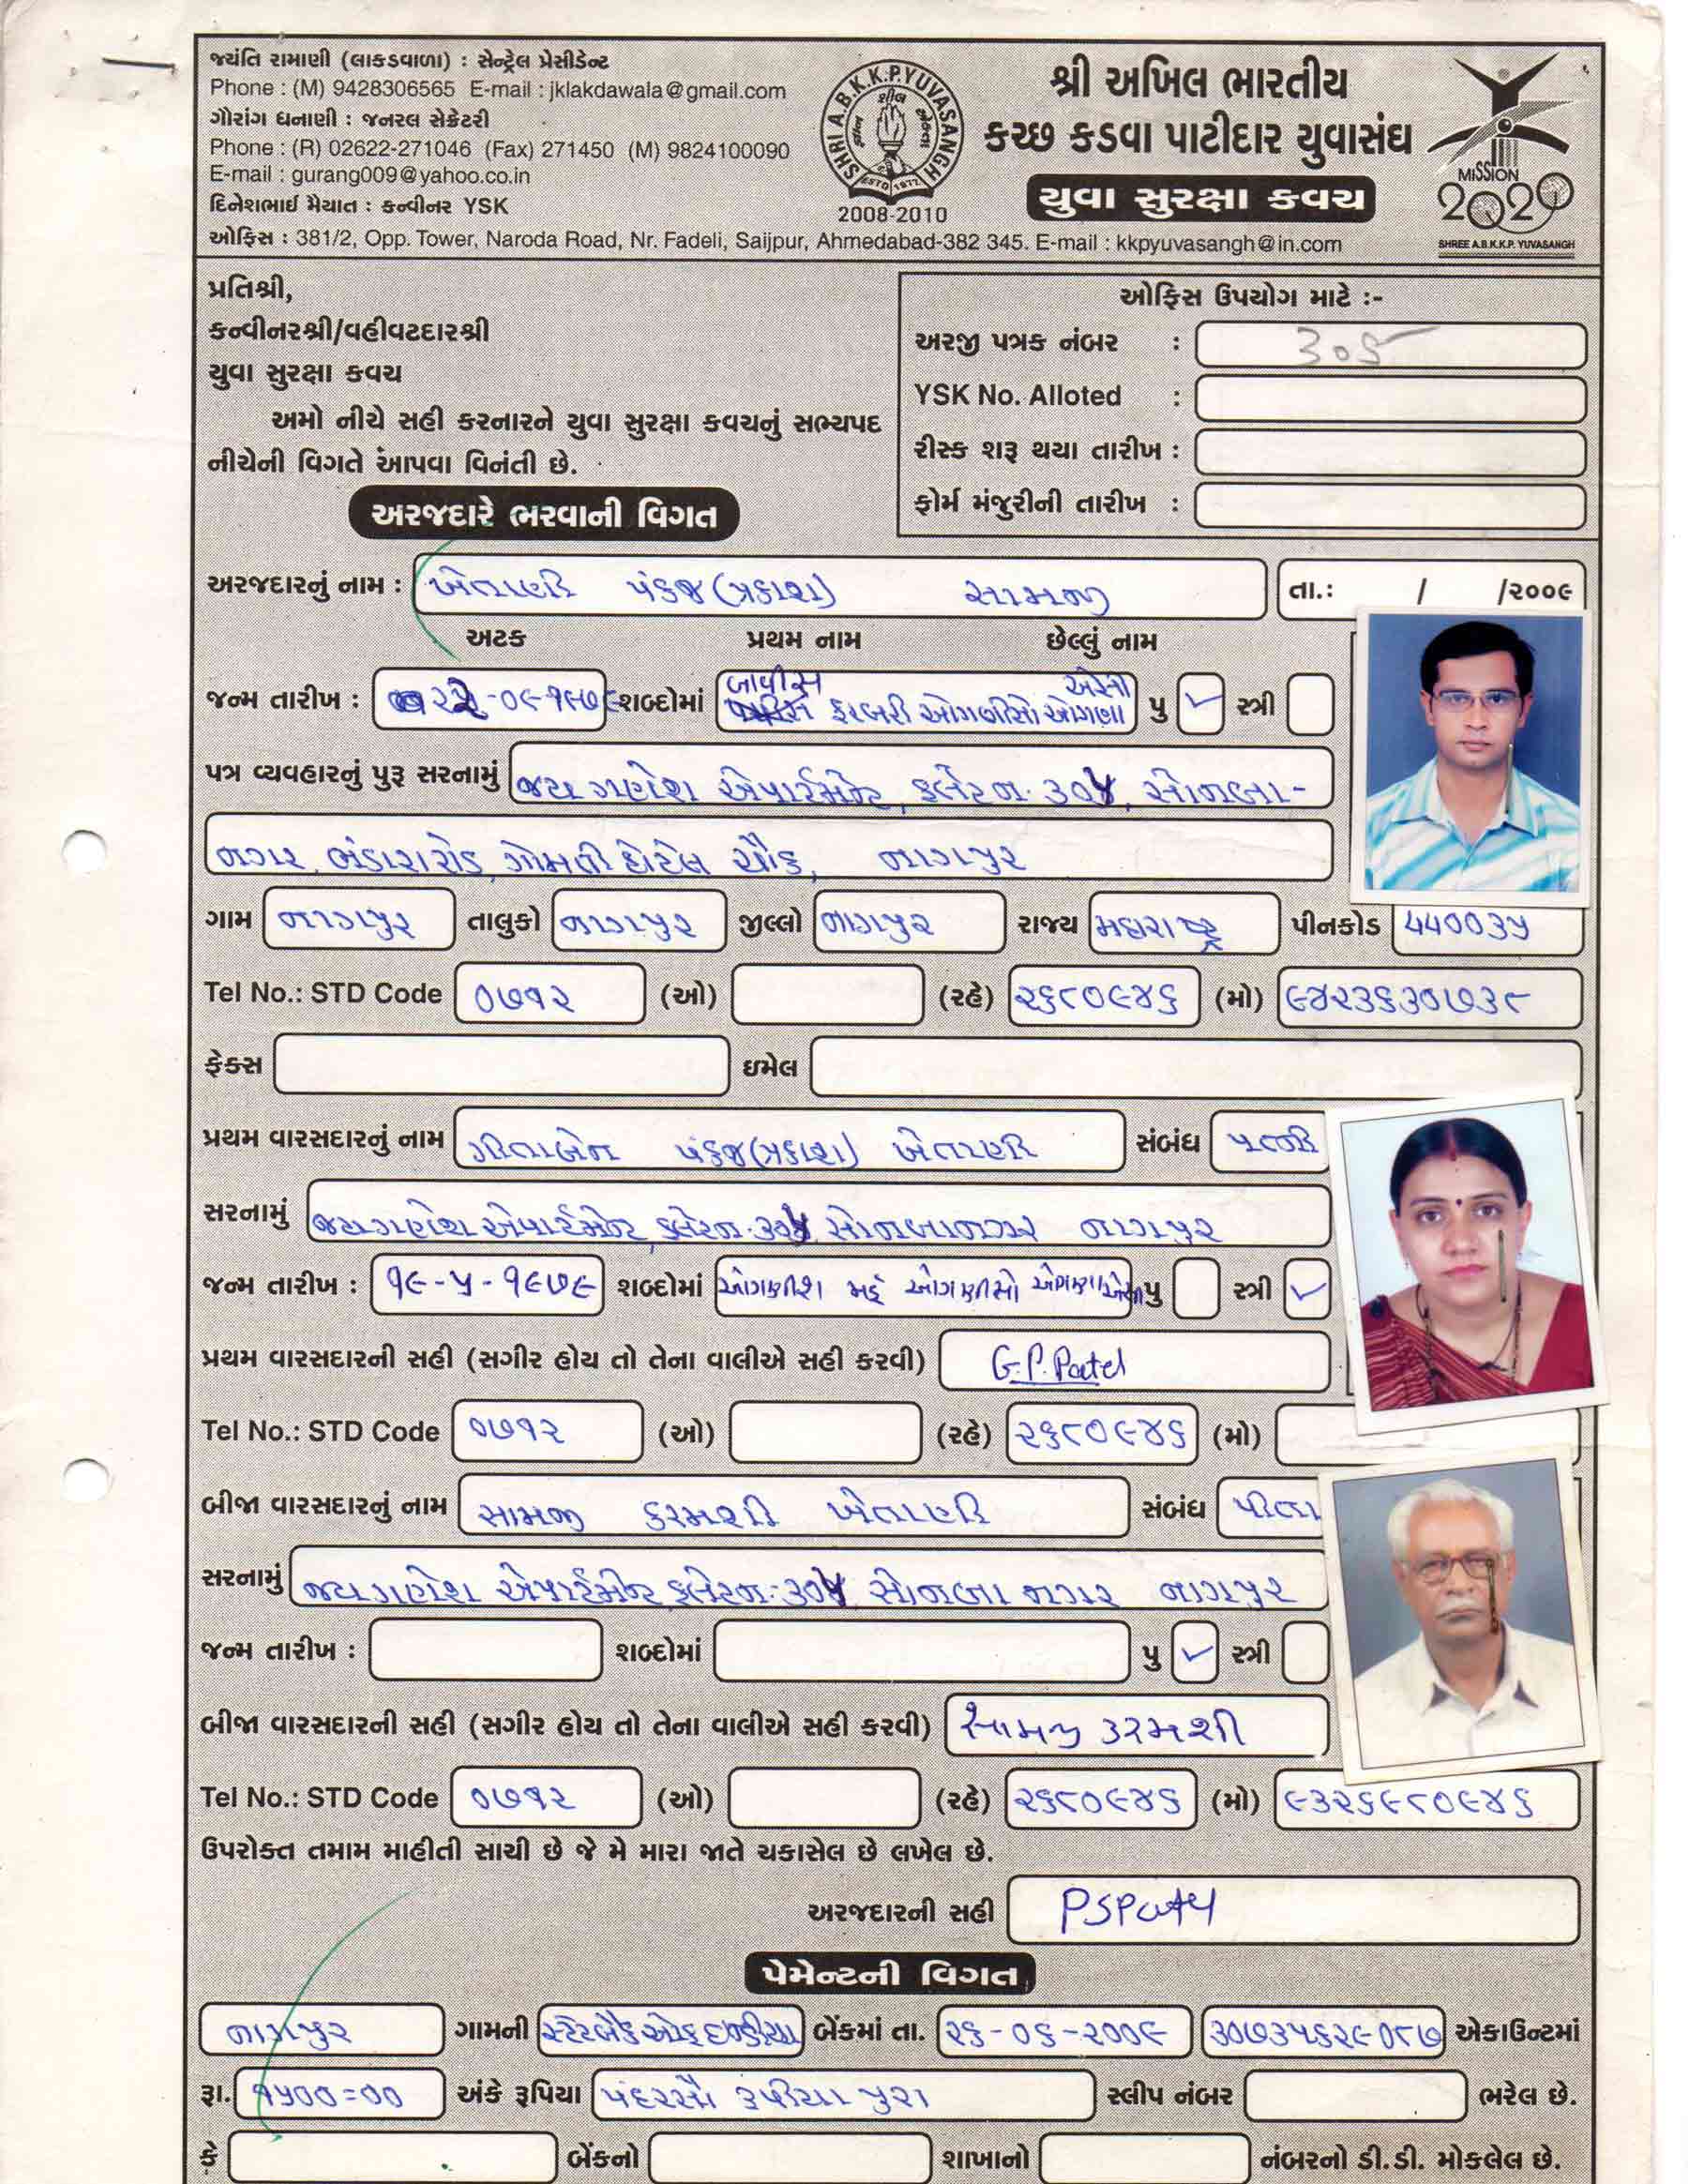 જયંતિ રામાણી (લાકડાવાળા) : સેન્ટ્રેલ પ્રેસીડેન્ટ
Phone : (M) 9428306565 E-mail : jklakdawala@gmail.com
ગૌરાંગ ધનાણી : જનરલ સેક્રેટરી
Phone : (R) 02622-271046 (Fax) 271450 (M) 9824100090
E-mail : gurang009@yahoo.co.in
દિનેશભાઈ મૈયાત : કન્વીનર YSK
SHRI A.B.K.K.P. YUVASANGH
ESTD 1977
2008-2010
શ્રી અખિલ ભારતીય
કચ્છ કડવા પાટીદાર યુવાસંઘ
યુવા સુરક્ષા કવચ
MISSION
2020
SHREE A.B.K.K.P. YUVASANGH
ઓફિસ : 381/2, Opp. Tower, Naroda Road, Nr. Fadeli, Saijpur, Ahmedabad-382 345. E-mail : kkpyuvasangh@in.com
પ્રતિશ્રી,
કન્વીનરશ્રી/વહીવટદારશ્રી
યુવા સુરક્ષા કવચ
અમો નીચે સહી કરનારને યુવા સુરક્ષા કવચનું સભ્યપદ
નીચેની વિગતે આપવા વિનંતી છે.
ઓફિસ ઉપયોગ માટે :-
અરજી પત્રક નંબર : 305
YSK No. Alloted :
રીસ્ક શરૂ થયા તારીખ :
ફોર્મ મંજુરીની તારીખ :
અરજદારે ભરવાની વિગત
અરજદારનું નામ : ખેતાણી પંકજ (પ્રકાશ) સામજી તા.: / /૨૦૦૯
અટક પ્રથમ નામ છેલ્લું નામ
જન્મ તારીખ : ૨૨-૦૯-૧૯૭૯ શબ્દોમાં બાવીસ ફરબરી ઓગણીસો ઓગણા એસી પુ ✓ સ્ત્રી
પત્ર વ્યવહારનું પુરૂ સરનામું જય ગણેશ એપાર્ટમેન્ટ, ફ્લેટ નં. ૩૦૪, સોનબા-
નગર, ભંડારા રોડ, ગોમતી હોટેલ ચૌક, નાગપુર
ગામ નાગપુર તાલુકો નાગપુર જીલ્લો નાગપુર રાજ્ય મહારાષ્ટ્ર પીનકોડ ૪૪૦૦૩૫
Tel No.: STD Code ૦૭૧૨ (ઓ) (રહે) ૨૬૮૦૯૪૬ (મો) ૯૪૨૩૬૩૦૭૩૮
ફેક્સ ઇમેલ
પ્રથમ વારસદારનું નામ ગીતાબેન પંકજ(પ્રકાશ) ખેતાણી સંબંધ પત્ની
સરનામું જય ગણેશ એપાર્ટમેન્ટ, ફ્લેટ નં. ૩૦૪ સોનબાનગર નાગપુર
જન્મ તારીખ : ૧૯-૫-૧૯૭૯ શબ્દોમાં ઓગણીશ મઈ ઓગણીસો ઓગણાએસી પુ સ્ત્રી ✓
પ્રથમ વારસદારની સહી (સગીર હોય તો તેના વાલીએ સહી કરવી) G.P.Patel
Tel No.: STD Code ૦૭૧૨ (ઓ) (રહે) ૨૬૮૦૯૪૬ (મો)
બીજા વારસદારનું નામ સામજી કરમશી ખેતાણી સંબંધ પીતા
સરનામું જય ગણેશ એપાર્ટમેન્ટ ફ્લેટ નં. ૩૦૪ સોનબા નગર નાગપુર
જન્મ તારીખ : શબ્દોમાં પુ ✓ સ્ત્રી
બીજા વારસદારની સહી (સગીર હોય તો તેના વાલીએ સહી કરવી) સામજી કરમશી
Tel No.: STD Code ૦૭૧૨ (ઓ) (રહે) ૨૬૮૦૯૪૬ (મો) ૯૩૨૬૯૮૦૯૪૬
ઉપરોક્ત તમામ માહીતી સાચી છે જે મે મારા જાતે ચકાસેલ છે લખેલ છે.
અરજદારની સહી PSPatel
પેમેન્ટની વિગત
નાગપુર ગામની સ્ટેટ બૈંક ઓફ ઇન્ડીયા બેંકમાં તા. ૨૬-૦૬-૨૦૦૯ ૩૦૭૩૫૬૨૯૦૮૭ એકાઉન્ટમાં
રૂા. ૧૫૦૦=૦૦ અંકે રૂપિયા પંદરસૌ રૂપીયા પુરા સ્લીપ નંબર ભરેલ છે.
કે બેંકનો શાખાનો નંબરનો ડી.ડી. મોકલેલ છે.